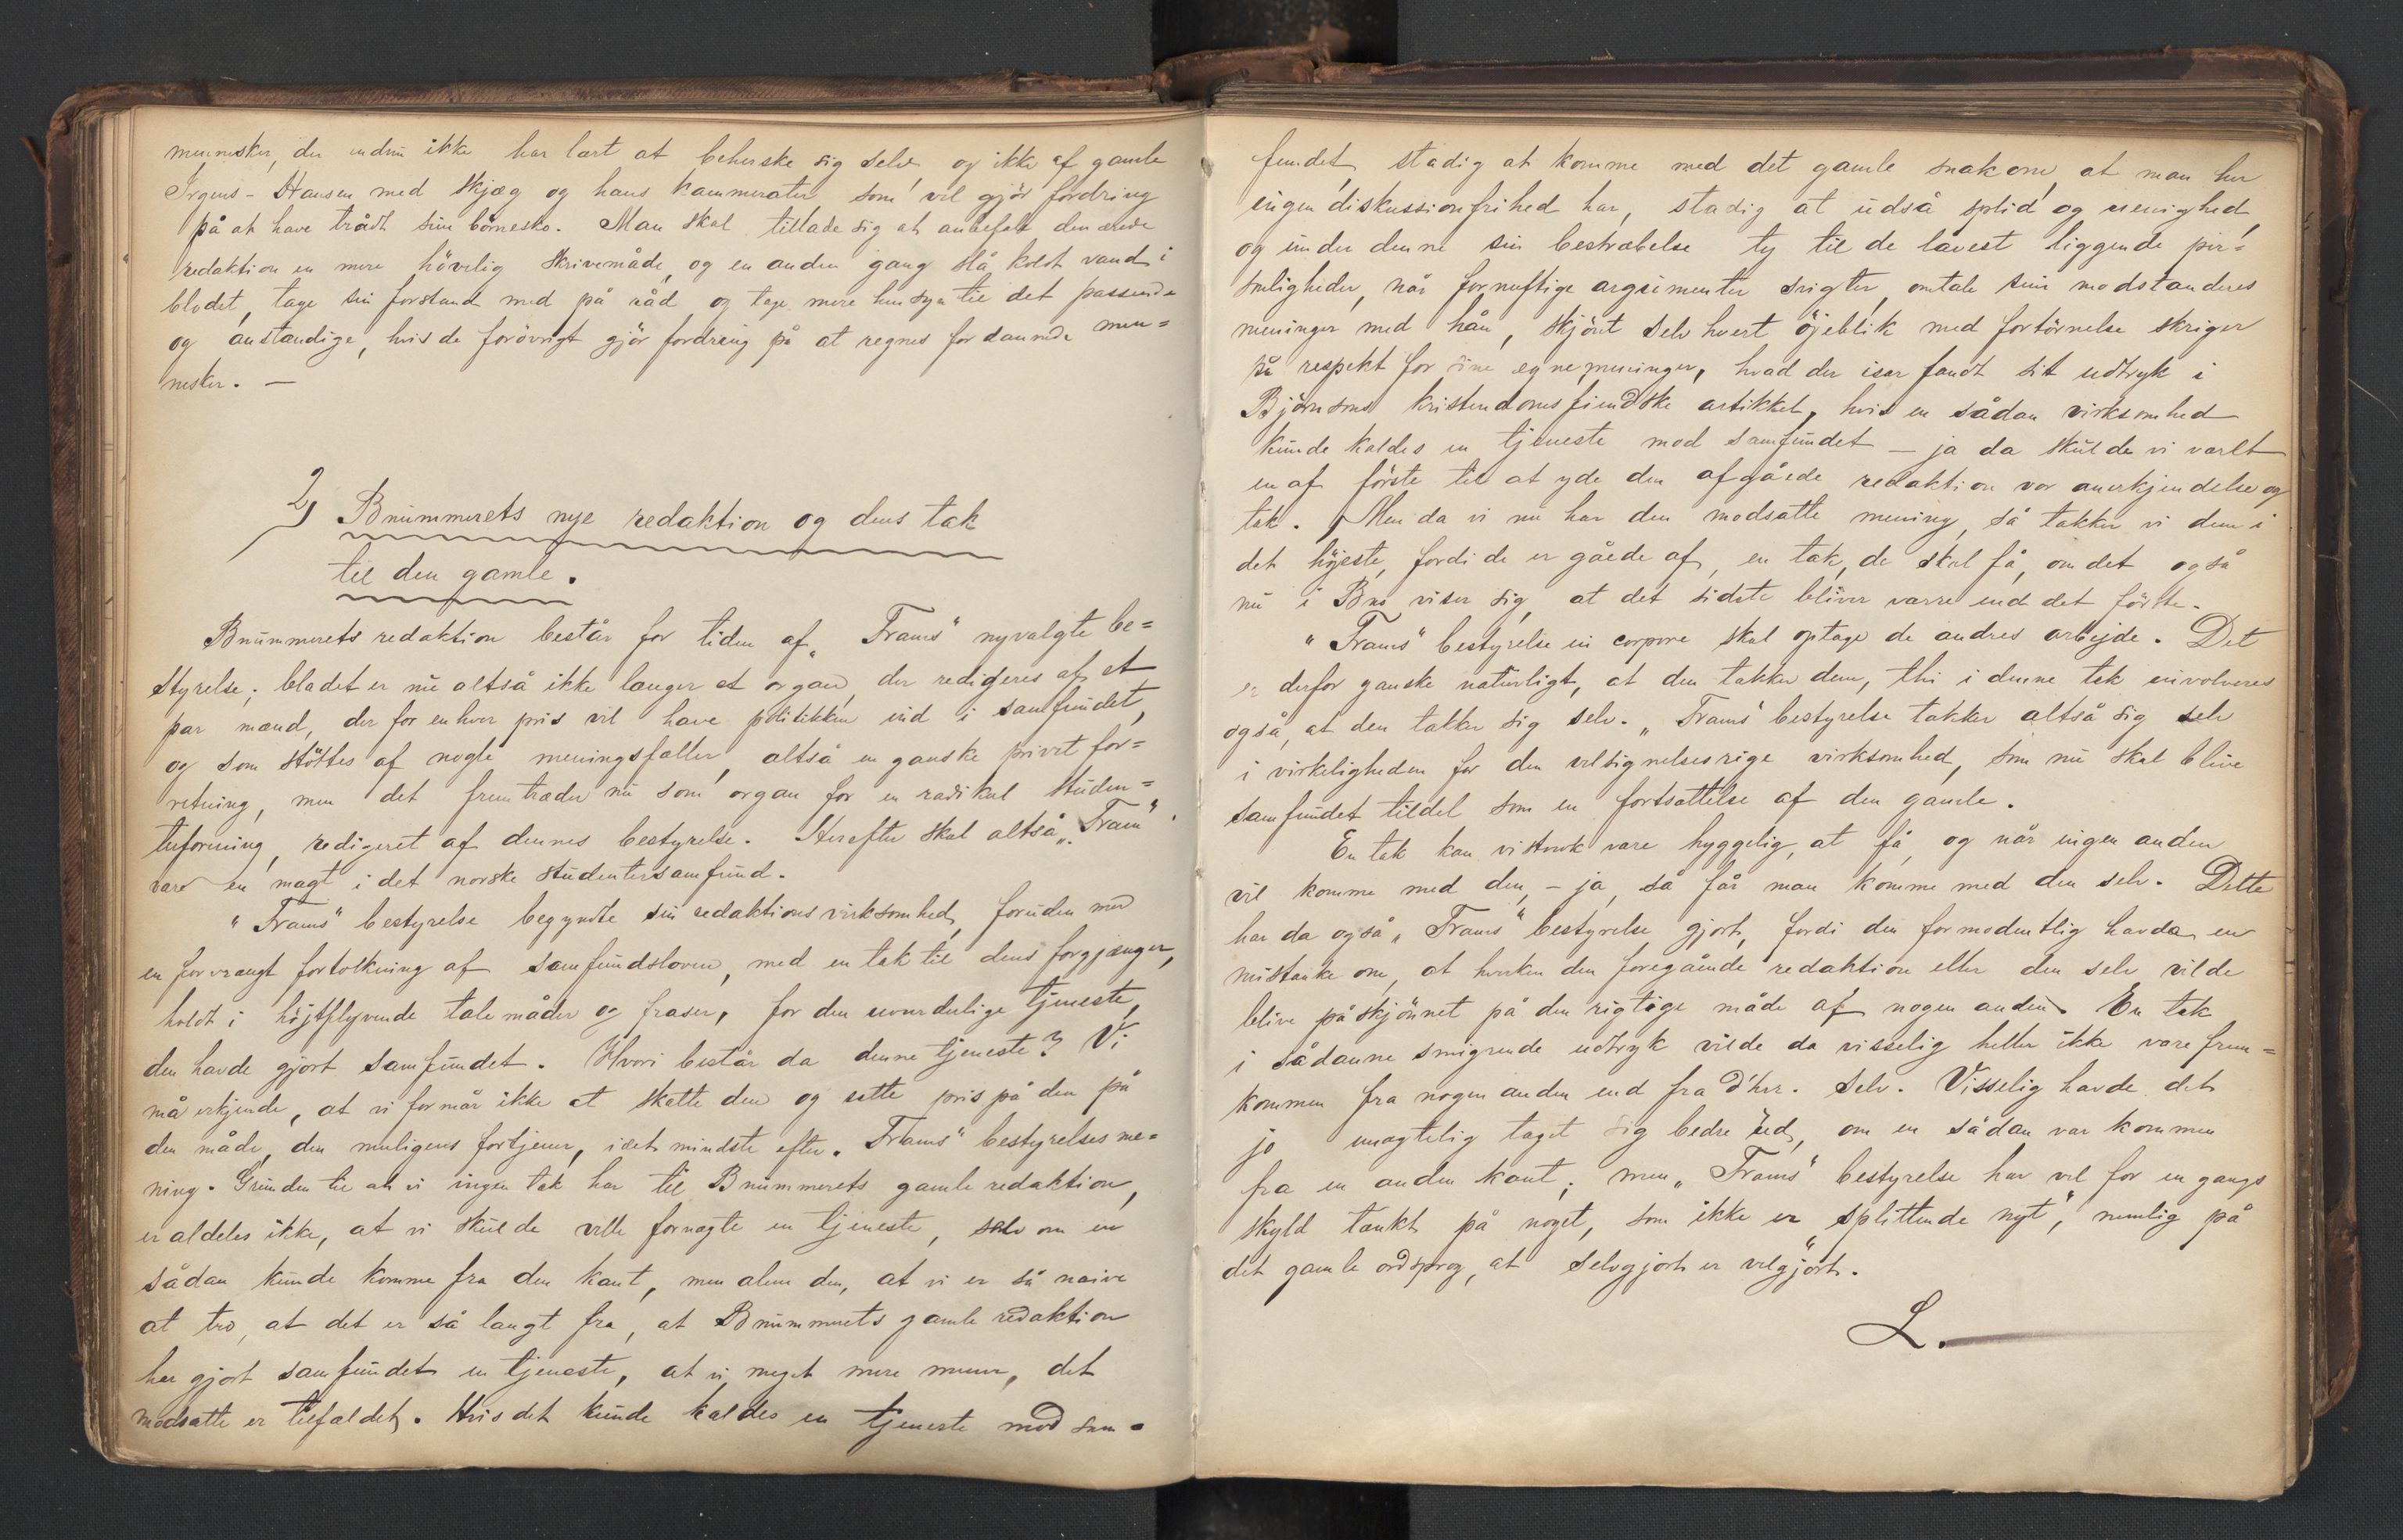 mennesker, der endnu ikke har lært at beherske sig selv, og ikke af gamle
Irgens-Hansen med skjæg og hans kammerater som vel gjör fordring
på at have trådt sine börnesko. Man skal tillade sig at anbefale den ærede
redaktion en mere hövelig skrivemåde, og en anden gang slå koldt vand i
blodet, tage sin forstand med på råd og tage mere hensyn til det passende
og anstændige, hvis de forövrigt gjör fordring på at regnes for dannede men=
nesker. —
2) Bnummerets nye redaktion og dens tak
til den gamle.
Bnummerets redaktion består for tiden af „Frams" nyvalgte be=
styrelse; bladet er nu altså ikke længer et organ, der redigeres af et
par mænd, der for enhver pris vil have politikken ind i samfundet,
og som stöttes af nogle meningsfæller, altså en ganske privat for=
retning, men det fremtræder nu som organ for en radikal studen=
terforening, redigeret af dennes bestyrelse. Herefter skal altså „Fram"
være en magt i det norske studentersamfund.
„Frams" bestyrelse begyndte sin redaktionsvirksomhed, foruden med
en forvrængt fortolkning af samfundsloven, med en tak til dens forgjænger,
holdt i höjtflyvende talemåder og fraser, for den uvurderlige tjeneste,
den havde gjort samfundet. Hvori består da denne tjeneste? Vi
må erkjende, at vi formår ikke at skatte den og sætte pris på den på
den måde, den muligens fortjener, i det mindste efter „Frams" bestyrelses me=
ning. Grunden til at vi ingen tak har til Bnummerets gamle redaktion,
er aldeles ikke, at vi skulde ville fornægte en tjeneste, selv om en
sådan kunde komme fra den kant, men alene den, at vi er så naive
at tro, at det er så langt fra, at Bnummerets gamle redaktion
har gjort samfundet en tjeneste, at vi meget mere mener, det
modsatte er tilfældet. Hvis det kunde kaldes en tjeneste mod sam=
fundet, stadig at komme med det gamle snak om, at man her
ingen diskussionsfrihed har, stadig at udså splid og uenighed,
og under denne sin bestræbelse ty til de lavest liggende per=
sonligheder, når fornuftige argumenter svigter, omtale sine modstanderes
meninger med hån, skjönt selv hvert öjeblik med fortörnelse skriger
på respekt for sine egne meninger, hvad der især fandt sit udtryk i
Björnsons kristendomsfiendske artikkel, hvis en sådan virksomhed
kunde kaldes en tjeneste mod samfundet — ja da skulde vi været
en af förste til at yde den afgåede redaktion vor anerkjendelse og
tak. Men da vi nu har den modsatte mening, så takker vi dem i
det höjeste, fordi de er gåede af, en tak, de skal få, om det også
nu i Bns viser sig, at det sidste bliver værre end det förste.
„Frams" bestyrelse in corpore skal optage de andres arbejde. Det
er derfor ganske naturligt, at den takker dem, thi i denne tak involveres
også, at den takker sig selv. „Frams" bestyrelse takker altså sig selv
i virkeligheden for den velsignelsesrige virksomhed, som nu skal blive
samfundet tildel som en fortsættelse af den gamle.
En tak kan vistnok være hyggelig, at få, og når ingen anden
vil komme med den, – ja, så får man komme med den selv. Dette
har da også „Frams" bestyrelse gjort, fordi den formodentlig havde en
mistanke om, at hverken den foregående redaktion eller den selv vilde
blive påskjönnet på den rigtige måde af nogen anden. En tak
i sådanne smigrende udtryk vilde da visselig heller ikke være frem=
kommen fra nogen anden end fra d'hrr. selv. Visselig havde det
jo unægtelig taget sig bedre ud, om en sådan var kommen
fra en anden kant; men „Frams" bestyrelse har vel for en gangs
skyld tænkt på noget, som ikke er „splittende nyt", nemlig på
det gamle ordsprog, at selvgjort er velgjört.
L.